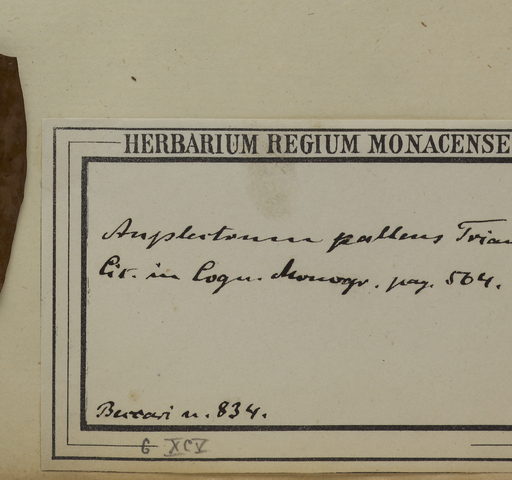 HERBARIUM REGIUM MONACENSE
Anplectrum pallens Trian
Cit. in Cogn. Monogr. pag. 564.
Beccari n. 834.
6 XCV